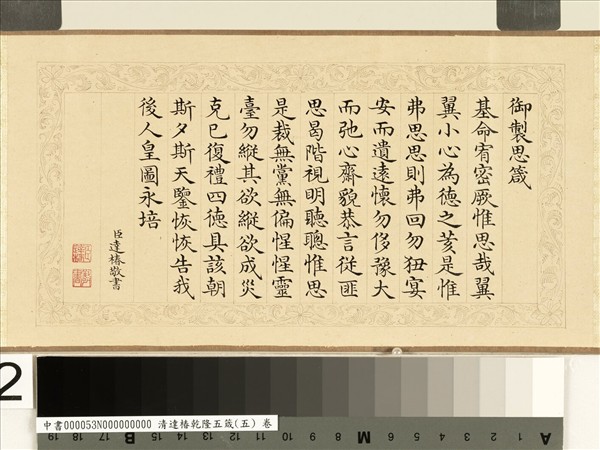 御製思箴
基命宥密厥惟思哉翼
翼小心為德之菱是惟
弗思思則弗回勿狃宴
安而遺遠懷勿侈豫大
而弛心齋貌恭言從匪
思曷階視明聽聰惟思
是裁無黨無偏惺惺靈
臺勿縱其欲縱欲成災
克己復禮四德具該朝
斯夕斯天鑒恢恢告我
後人皇圖永培
臣達椿敬書
2
中書000053N000000000 清達椿乾隆五箴(五) 卷
19 18 17 16 15 B 11 10 9 8 M 6 5 4 3 2 1 A